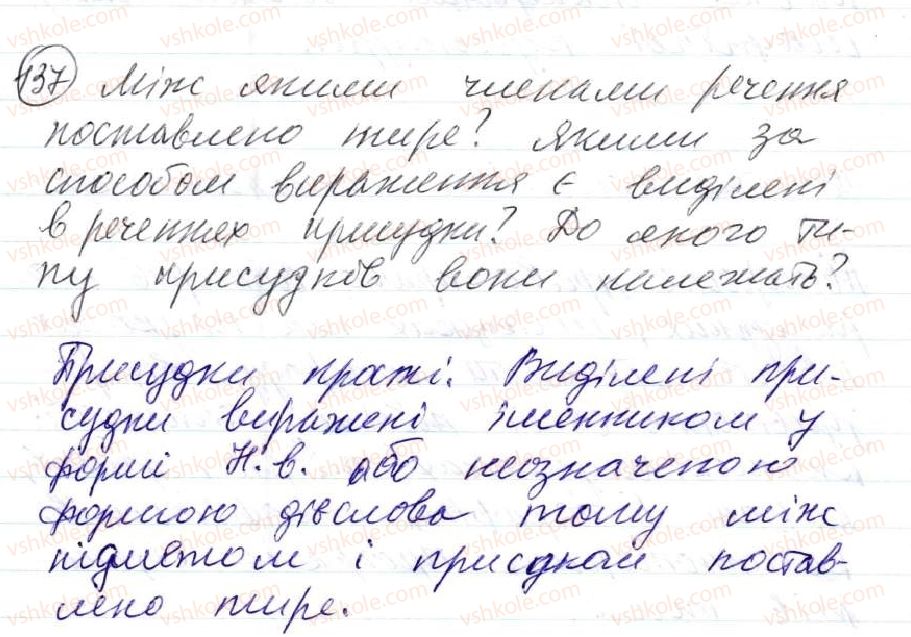 137 Між якими членами речення
поставлено тире? Якими за
способом вираження є виділені
в реченнях присудки? До якого ти-
пу присудків вони належать?
Присудки прості. Виділені при-
судки виражені іменником у
формі Н.в. або неозначеною
формою дієслова тому між
підметом і присдком постав-
лено тире.